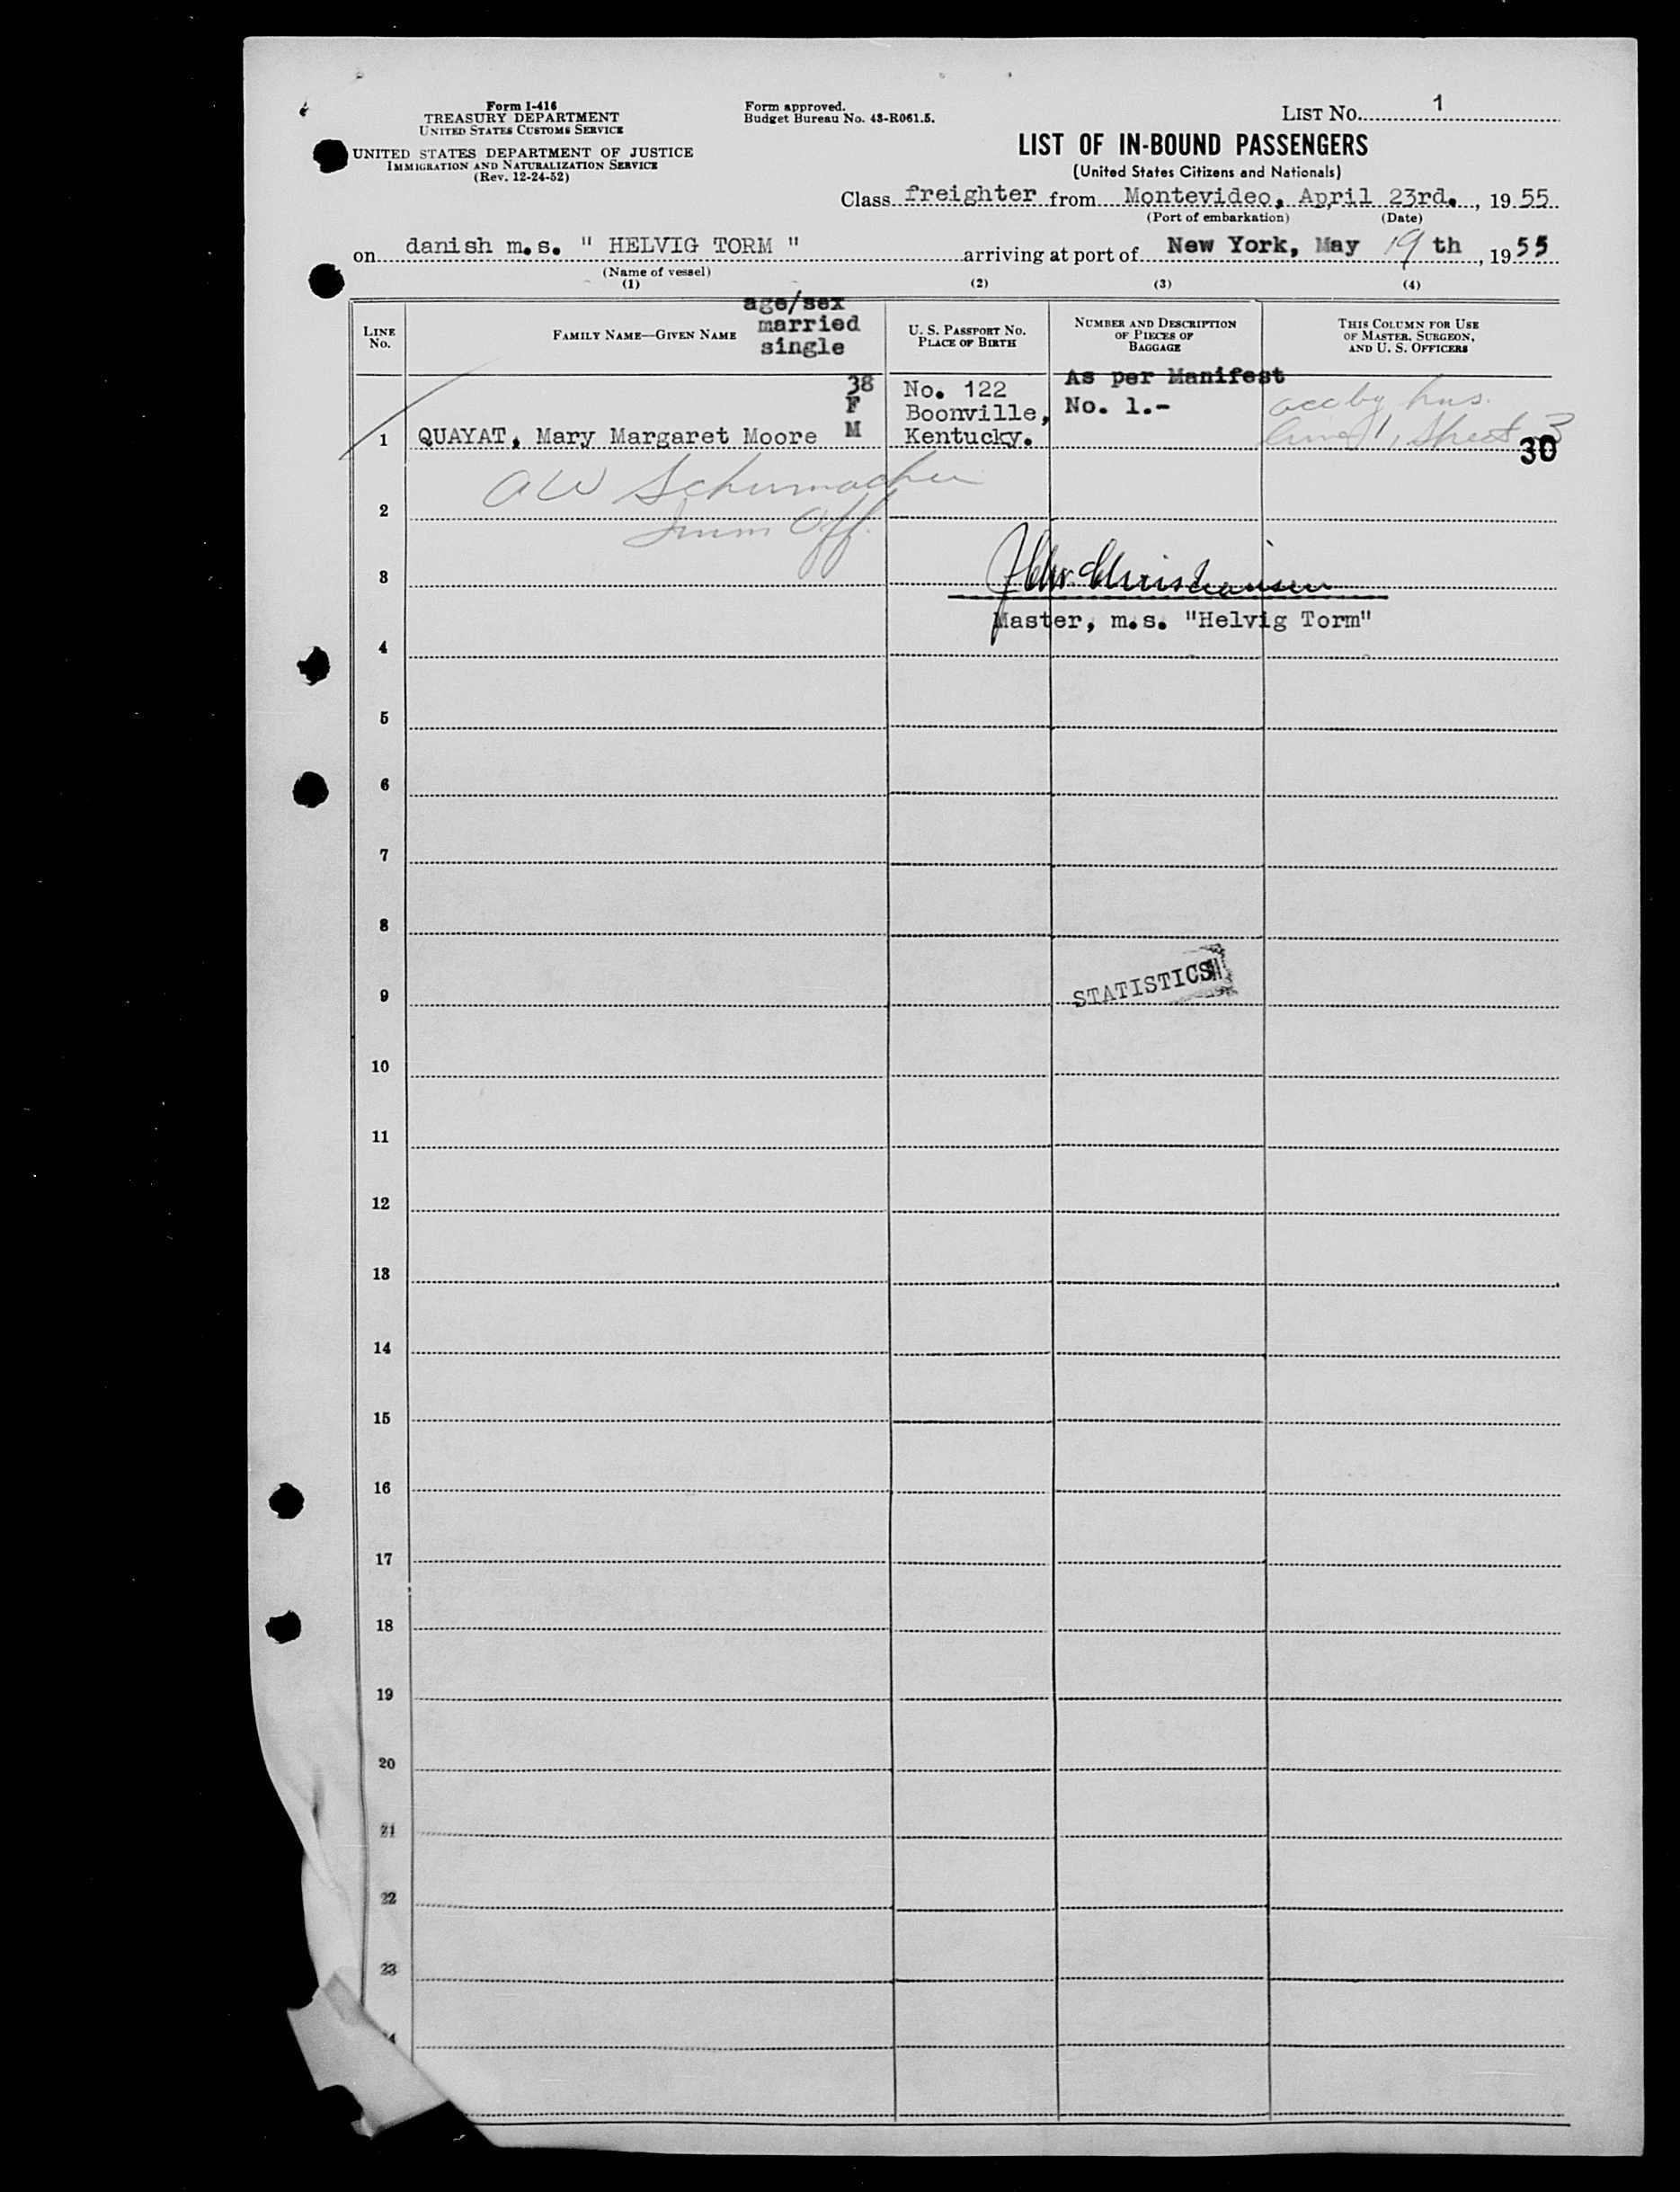 Form I-416
TREASURY DEPARTMENT
UNITED STATES CUSTOMS SERVICE
UNITED STATES DEPARTMENT OF JUSTICE
IMMIGRATION AND NATURALIZATION SERVICE
(Rev. 12-24-52)
Form approved.
Budget Bureau No. 43-R061.5.
LIST No. 1
LIST OF IN-BOUND PASSENGERS
(United States Citizens and Nationals)
Class freighter from Montevideo, April 23rd. , 19 55
(Port of embarkation) (Date)
on danish m.s. " HELVIG TORM " arriving at port of New York, May 19 th , 19 55
(Name of vessel)
(1) (2) (3) (4)
LINE No.
FAMILY NAME—GIVEN NAME
age/sex
married
single
U. S. PASSPORT NO.
PLACE OF BIRTH
NUMBER AND DESCRIPTION
OF PIECES OF
BAGGAGE
THIS COLUMN FOR USE
OF MASTER, SURGEON,
AND U. S. OFFICERS
1 QUAYAT, Mary Margaret Moore
38
F
M
No. 122
Boonville,
Kentucky.
As per Manifest
No. 1.-
acc by hus.
line 1, Sheet 3
30
AW Schumacher
Imm Off.
2
3
Christiansen
Master, m.s. "Helvig Torm"
4
5
6
7
8
9
STATISTICS
10
11
12
13
14
15
16
17
18
19
20
21
22
23
4